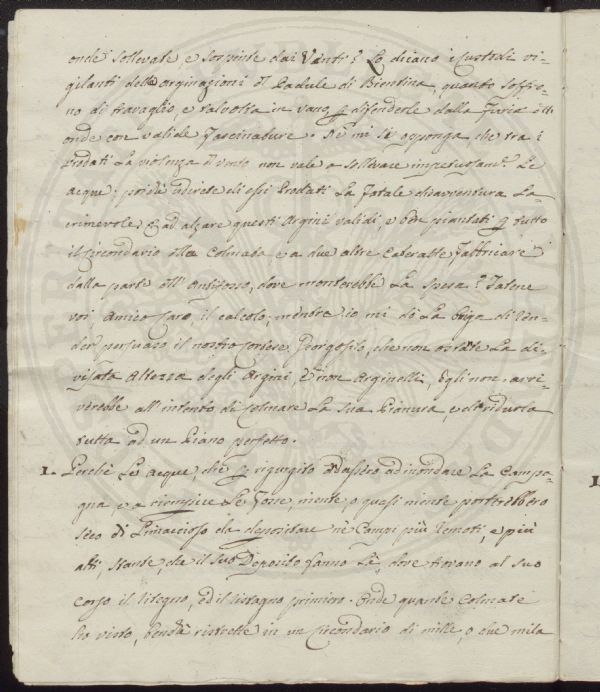 onde sollevate e sospinte dai Venti? Lo dicano i Custodi vi-
gilanti delle arginazioni del Padule di Bientina, quanto soffro-
no di travaglio, e talvolta in vano p difenderle dalla Furia dell'
onde con valide Fascinature. Nè mi si opponga, che tra i
Prodati La violenza del vento non vale a sollevare impetuosam.e Le
acque; poichè udirete di essi Prodati La Fatale disavventura La-
crimevole. Ad alzare questi Argini validi, e ben piantati p tutto
il Circondario alla Colmata, e a due altre Cateratte Fabbricare
dalla parte dell' Antifosso, dove monterebbe La spesa? Fatene
voi Amico Caro, il calcolo; mentre io mi dò La briga di ren-
der persuaso il nostro Cortese Georgofilo, che non ostante La di-
visata Altezza degli Argini, e non Arginelli, Egli non arri-
verebbe all' intento di Colmare La sua Pianura, e di ridurla
tutta ad un Piano perfetto.
1. Perchè Le acque, che p rigurgito andassero ad inondare La Campa-
gna, e a riempire Le Fosse, niente, o quasi niente porterebbero
seco di Limaccioso da depositare nè Campi più remoti, e più
alti, stante, che il suo Deposito fanno Là, dove trovano al suo
corso il ritegno, ed il ristagno primiero. Onde quante Colmate
ho visto, benchè ristrette in un Circondario di mille, o due mila